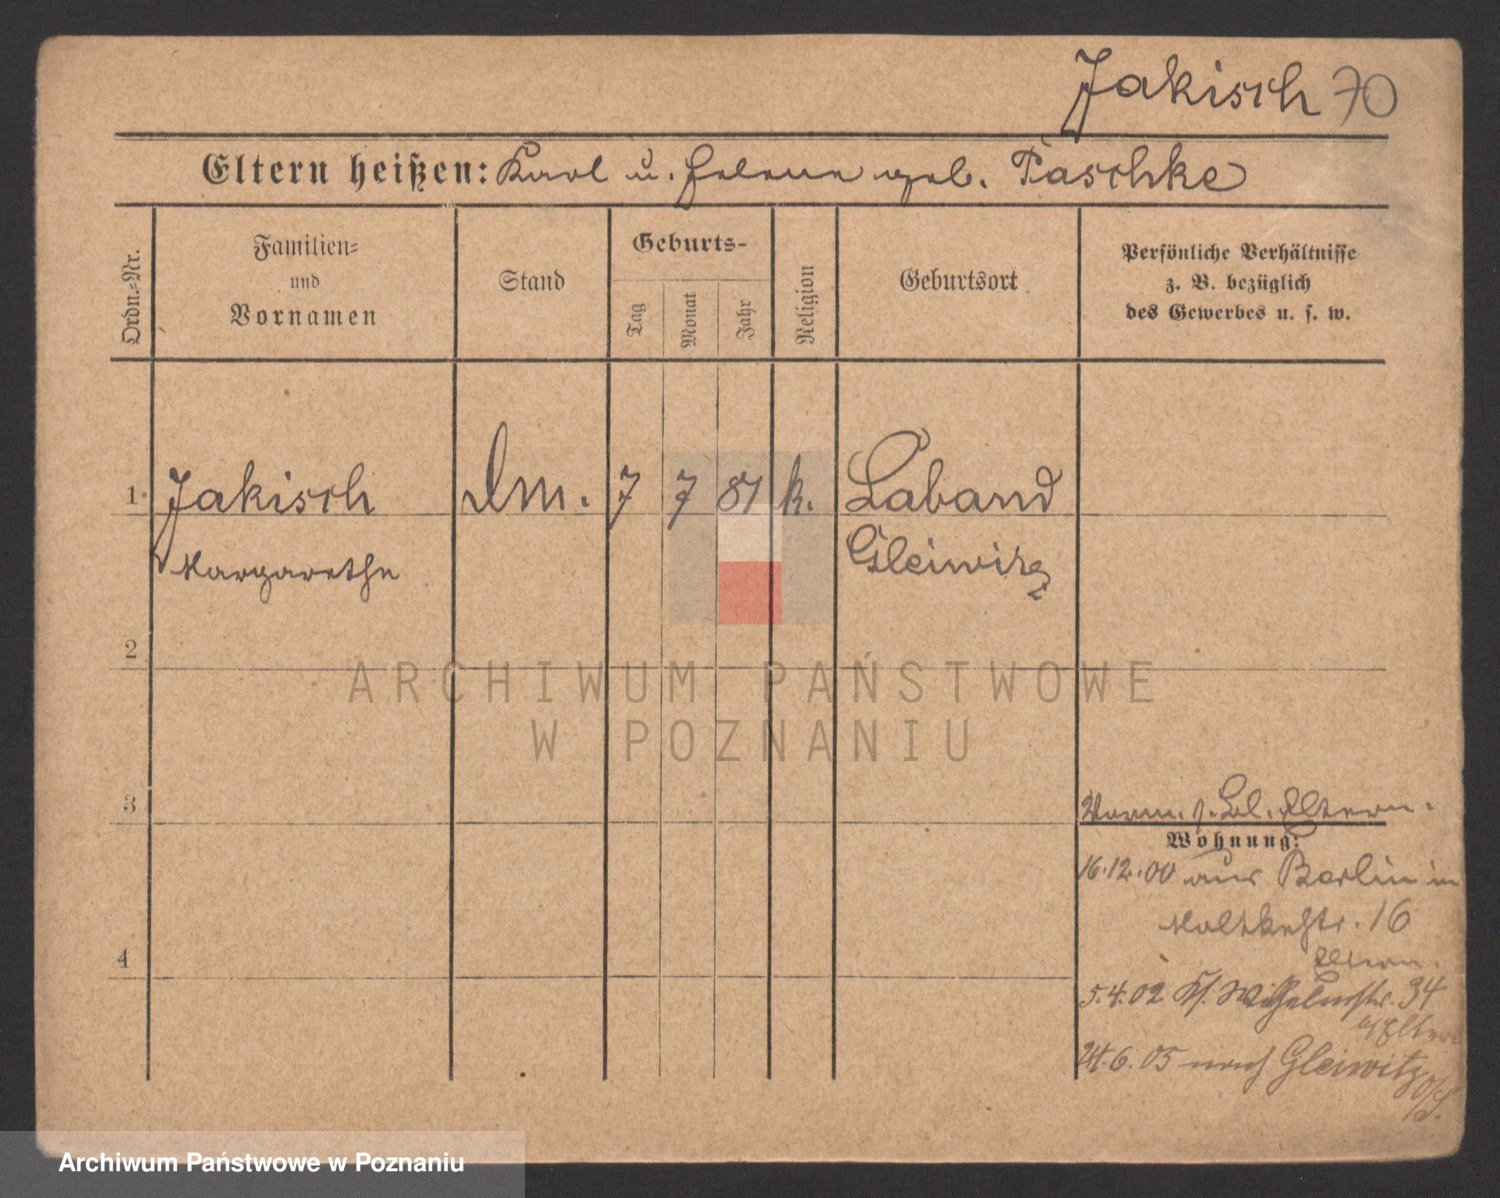 Jakisch 70
Eltern heißen: Karl u. Helene geb. Paschke
Ordn.-Nr.
Familien-
und
Vornamen
Stand
Geburts-
Tag
Monat
Jahr
Religion
Geburtsort
Persönliche Verhältnisse
z. B. bezüglich
des Gewerbes u. s. w.
1. Jakisch 7 7 81 k. Laband
Margarethe Gleiwitz
2
3
Eltern.
Wohnung:
16.12.00 aus Berlin in
Moltkestr. 16
Eltern.
4
5.4.02 Wilhelmstr. 34
Eltern
24.6.05 nach Gleiwitz O/S.
ARCHIWUM PAŃSTWOWE
W POZNANIU
Archiwum Państwowe w Poznaniu